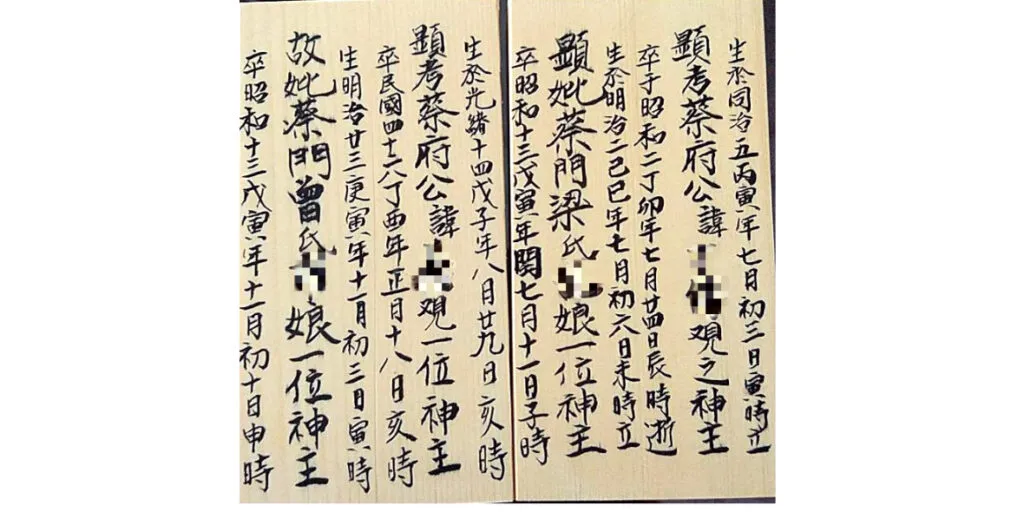 生於同治五丙寅年七月初三日寅時立
顯考蔡府公諱觀之神主
卒于昭和二丁卯年七月廿四日辰時逝
生於明治二己巳年七月初六日未時立
顯妣蔡門梁氏娘一位神主
卒昭和十三戊寅年閏七月十一日子時
生於光緒十四戊子年八月廿九日亥時
顯考蔡府公諱觀一位神主
卒民國四十六丁酉年正月十八日亥時
生明治廿三庚寅年十一月初三日寅時
故妣蔡門曾氏娘一位神主
卒昭和十三戊寅年十一月初十日申時